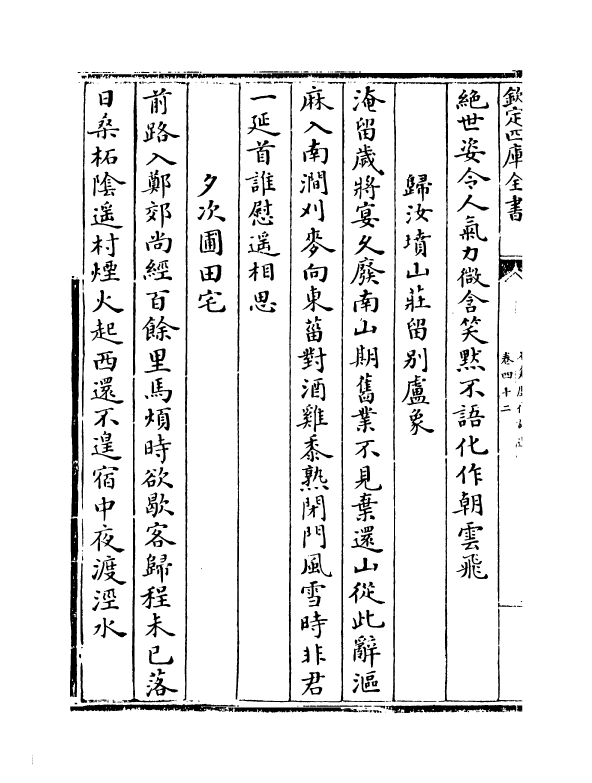 欽定四庫全書
卷四十二
絕世姿令人氣力微含笑黙不語化作朝雲飛
歸汝墳山莊留别盧象
淹留歲將宴久廢南山期舊業不見棄還山從此辭漚
麻入南澗刈麥向東菑對酒雞黍熟閉門風雪時非君
一延首誰慰遥相思
夕次圃田宅
前路入鄭郊尚經百餘里馬煩時欲歇客歸程未已落
日桑柘陰遥村煙火起西還不遑宿中夜渡涇水